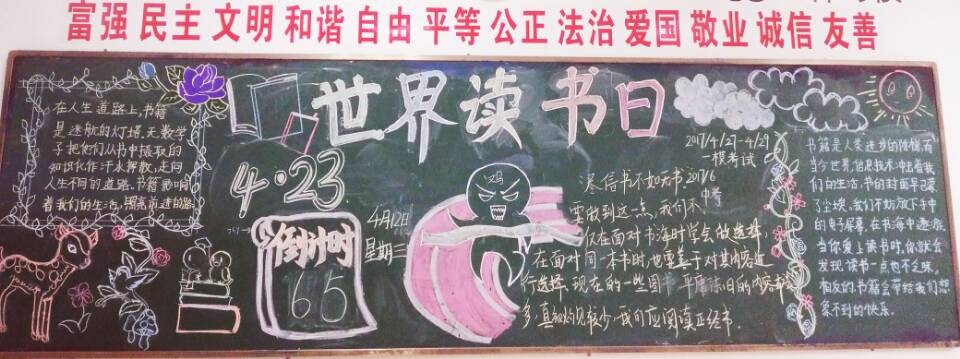 富强 民主 文明 和谐 自由 平等 公正 法治 爱国 敬业 诚信 友善
世界读书日
在人生道路上,书籍
是迷航的灯塔,无数学
子把他们从书中摄取的
知识化作汗水挥散,走向
人生不同的道路.书籍影响
着我们的生活,照亮前进的路
4·23
4月12日
星期三
倒计时
65
2017/4/27-4/29
一模考试
2017/6
中考
尽信书不如无书
要做到这一点,我们不
仅在面对书海时学会做选择,
在面对同一本书时,也要善于对其内容进
行选择.现在的一些图书
多,真知灼见较少,我们应阅读正经书.
书籍是人类进步的阶梯,在
当今世界,信息技术冲击着我
们的生活,书的封面早已蒙
了尘埃,我们不妨放下手中
的电子屏幕,在书海中遨游.
当你爱上读书时,你就会
发现读书一点也不乏味,
相反的书籍会带给我们想
象不到的快乐.